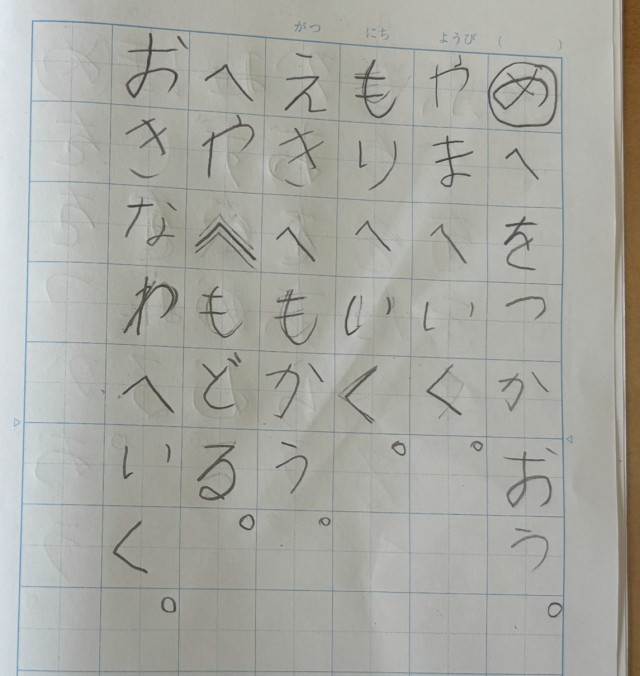 がつ にち ようび ( )
めへをつかおう。
やまへいく。
もりへいく。
えきへもかう。
へやへもどる。
おきなわへいく。